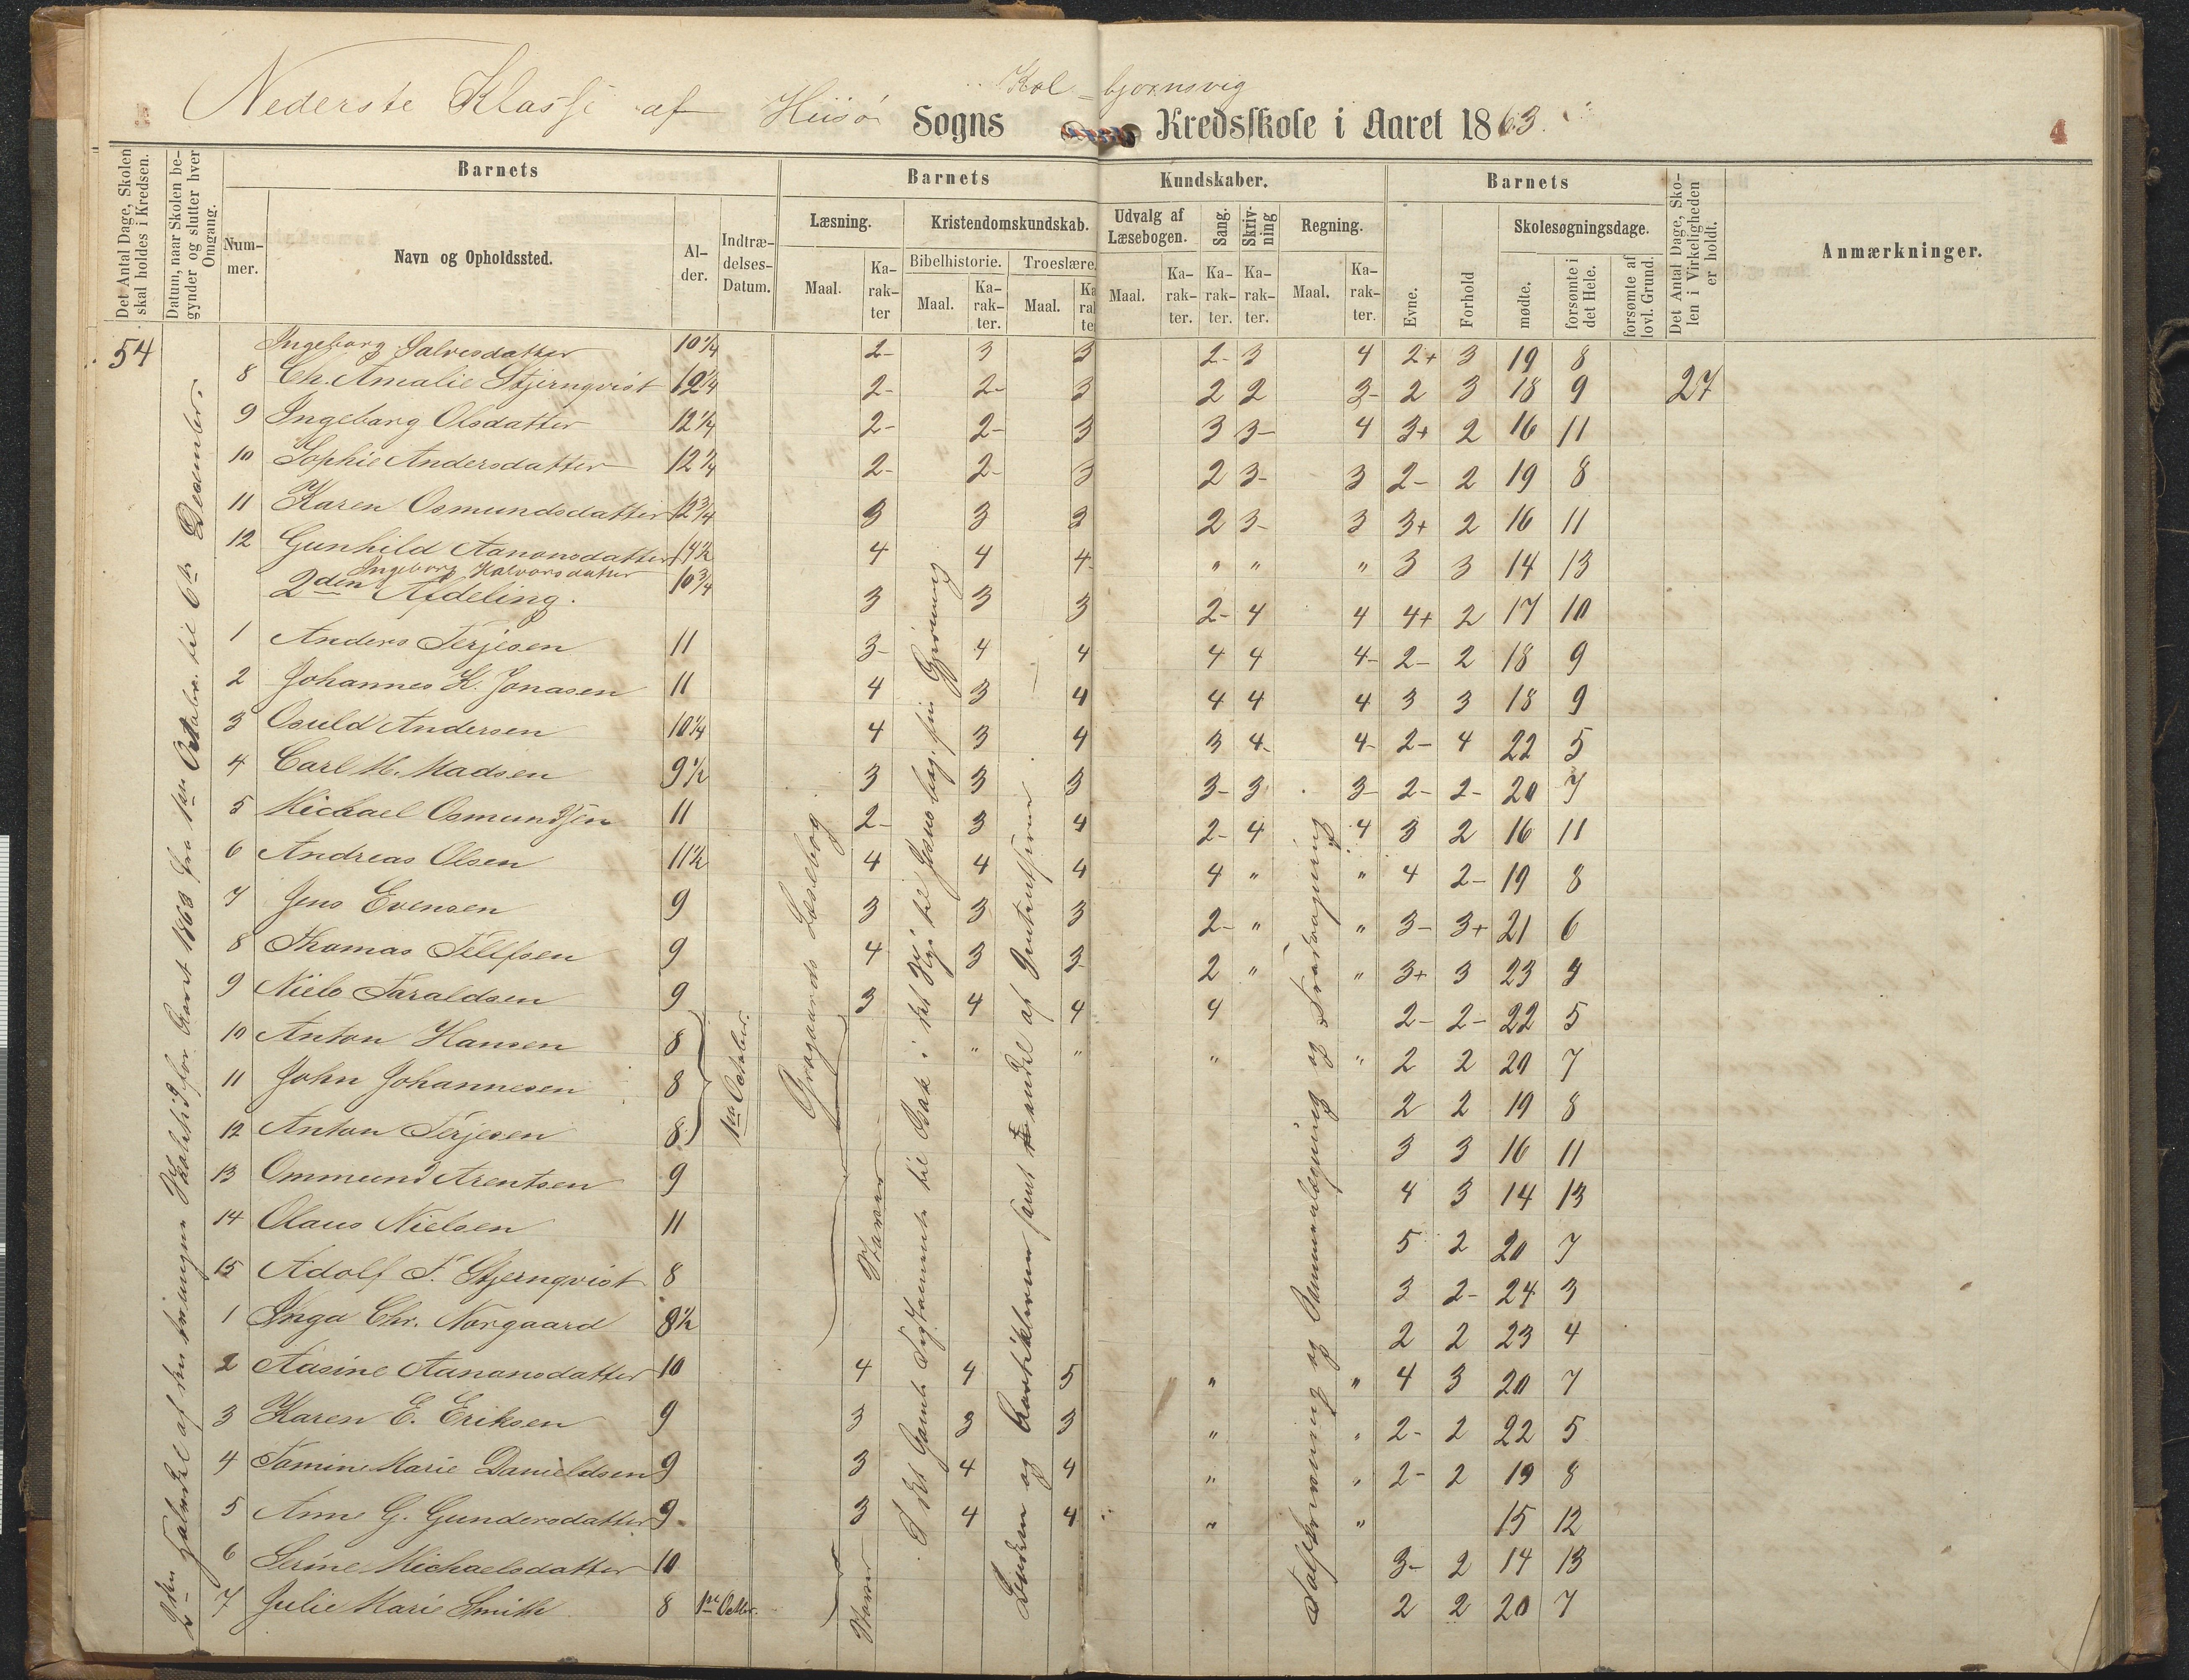 Nederste Klasse af Hiisø Sogns Kolbjørnsvig Kredsskole i Aaret 1863.
4
Det Antal Dage, Skolen skal holdes i Kredsen.
Datum, naar Skolen begynder og slutter hver Omgang.
Barnets
Nummer.
Navn og Opholdssted.
Alder.
Indtrædelses-Datum.
Barnets Kundskaber.
Læsning.
Maal.
Karakter
Kristendomskundskab.
Bibelhistorie.
Maal.
Karakter.
Troeslære.
Maal.
Karakter
Udvalg af Læsebogen.
Maal.
Karakter.
Sang.
Karakter.
Skrivning
Karakter.
Regning.
Maal.
Karakter.
Barnets
Evne.
Forhold
Skolesøgningsdage.
mødte.
forsømte i det Hele.
forsømte af lovl. Grund.
Det Antal Dage, Skolen i Virkeligheden er holdt.
Anmærkninger.
54 Ingeborg Salvesdatter 10 1/4 2- 3 3 2- 3 4 2+ 3 19 8
8 Ch. Amalie Stjernqvist 12 1/4 2- 2- 3 2 2 3- 2 3 18 9 27
9 Ingeborg Olsdatter 12 1/4 2- 2- 3 3 3- 4 3+ 2 16 11
10 Sophie Andersdatter 12 1/4 2- 2- 3 2 3- 3 2- 2 19 8
11 Karen Osmundsdatter 12 3/4 3 3 3 2 3- 3 3+ 2 16 11
12 Gunhild Aanonsdatter 14 1/2 4 4 4- " " " 3 3 14 13
Ingeborg Halvorsdatter 10 3/4 3 3 3 2- 4 4 4+ 2 17 10
2den Afdeling.
1 Anders Terjesen 11 3- 4 4 4 4 4- 2- 2 18 9
2 Johannes K. Jonasen 11 4 3 4 4 4 4 3 3 18 9
3 Osuld Andersen 10 1/4 4 3 4 3 4- 4- 2- 4 22 5
4 Carl M. Madsen 9 1/2 3 3 3 3- 3 3- 2- 2- 20 7
5 Michael Osmundsen 11 2- 3 4 2- 4 4 3 2 16 11
6 Andreas Olsen 11 1/2 4 4 4 4 " " 4 2- 19 8
7 Jens Evensen 9 3 3 3 2- " " 3- 3+ 21 6
8 Thomas Tellfsen 9 4 3 3- 2 " " 3+ 3 23 4
9 Niels Taraldsen 9 3 4 4 4 2- 2- 22 5
10 Anton Hansen 8 " " " " 2 2 20 7
11 John Johannesen 8 1ste October. 2 2 19 8
12 Anton Terjesen 8 3 3 16 11
13 Ommund Arentsen 9 4 3 14 13
14 Olaus Nielsen 11 5 2 20 7
15 Adolf F. Stjernqvist 8 3 2- 24 3
1 Inga Chr. Norgaard 8 1/2 2 2 23 4
2 Aasine Aanonsdatter 10 4 4 5 " " 4 3 20 7
3 Karen E. Eriksen 9 3 3 3 " " 2- 2 22 5
4 Tomine Marie Danieldsen 9 3 4 4 " " 2- 2 19 8
5 Anne G. Gundersdatter 9 3 4 4 " " 15 12
6 Serine Michaelsdatter 10 3- 2 14 13
7 Julie Marie Smith 8 1ste Octbr. 2 2 20 7
2den Halvdel af den tvungne Skoletid for Aaret 1863 fra 1ste October til 6te December.
Grogaards Læsebog
Staver
Staver
I det Gamle Testamente til Isak i det Nye til Jesus beg. sin Gjerning
Lærdom og Troesartiklerne samt
Talskrivning og Sammenlægning og Fradragning